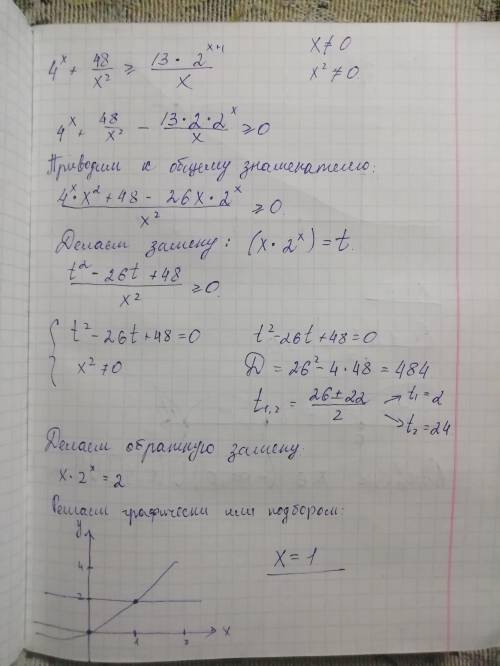 4^x + 48/x² ⩾ 13 · 2^(x+1)/x
x ≠ 0
x² ≠ 0
4^x + 48/x² - 13·2·2^x/x ⩾ 0
Приводим к общему знаменателю:
(4^x · x² + 48 - 26x · 2^x)/x² ⩾ 0
Делаем замену: (x · 2^x) = t.
(t² - 26t + 48)/x² ⩾ 0
{ t² - 26t + 48 = 0
x² ≠ 0
t² - 26t + 48 = 0
D = 26² - 4 · 48 = 484
t₁,₂ = (26 ± 22)/2 → t₁ = 2
→ t₂ = 24
Делаем обратную замену
x · 2^x = 2
Решаем графически или подбором:
y
4
2
1
x
x = 1